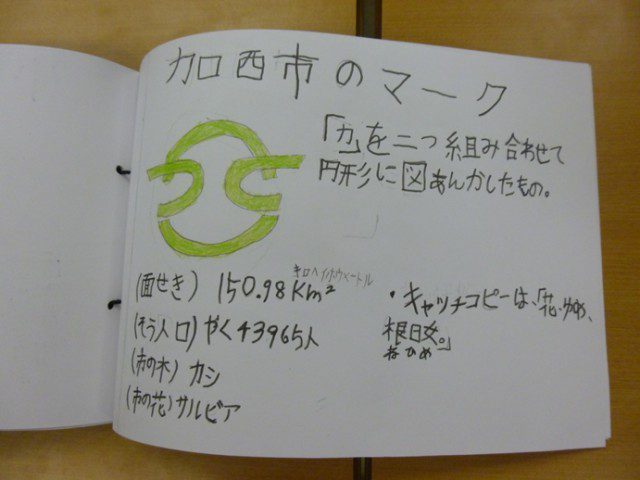 加西市のマーク
「カ」を二つ組み合わせて
円形に図あんかしたもの。
(面せき) 150.98Km²
キロヘイホウメートル
(そう人口)やく43965人
(市の木) カシ
(市の花)サルビア
・キャッチコピーは、「花・ゆめ、
根日女。」